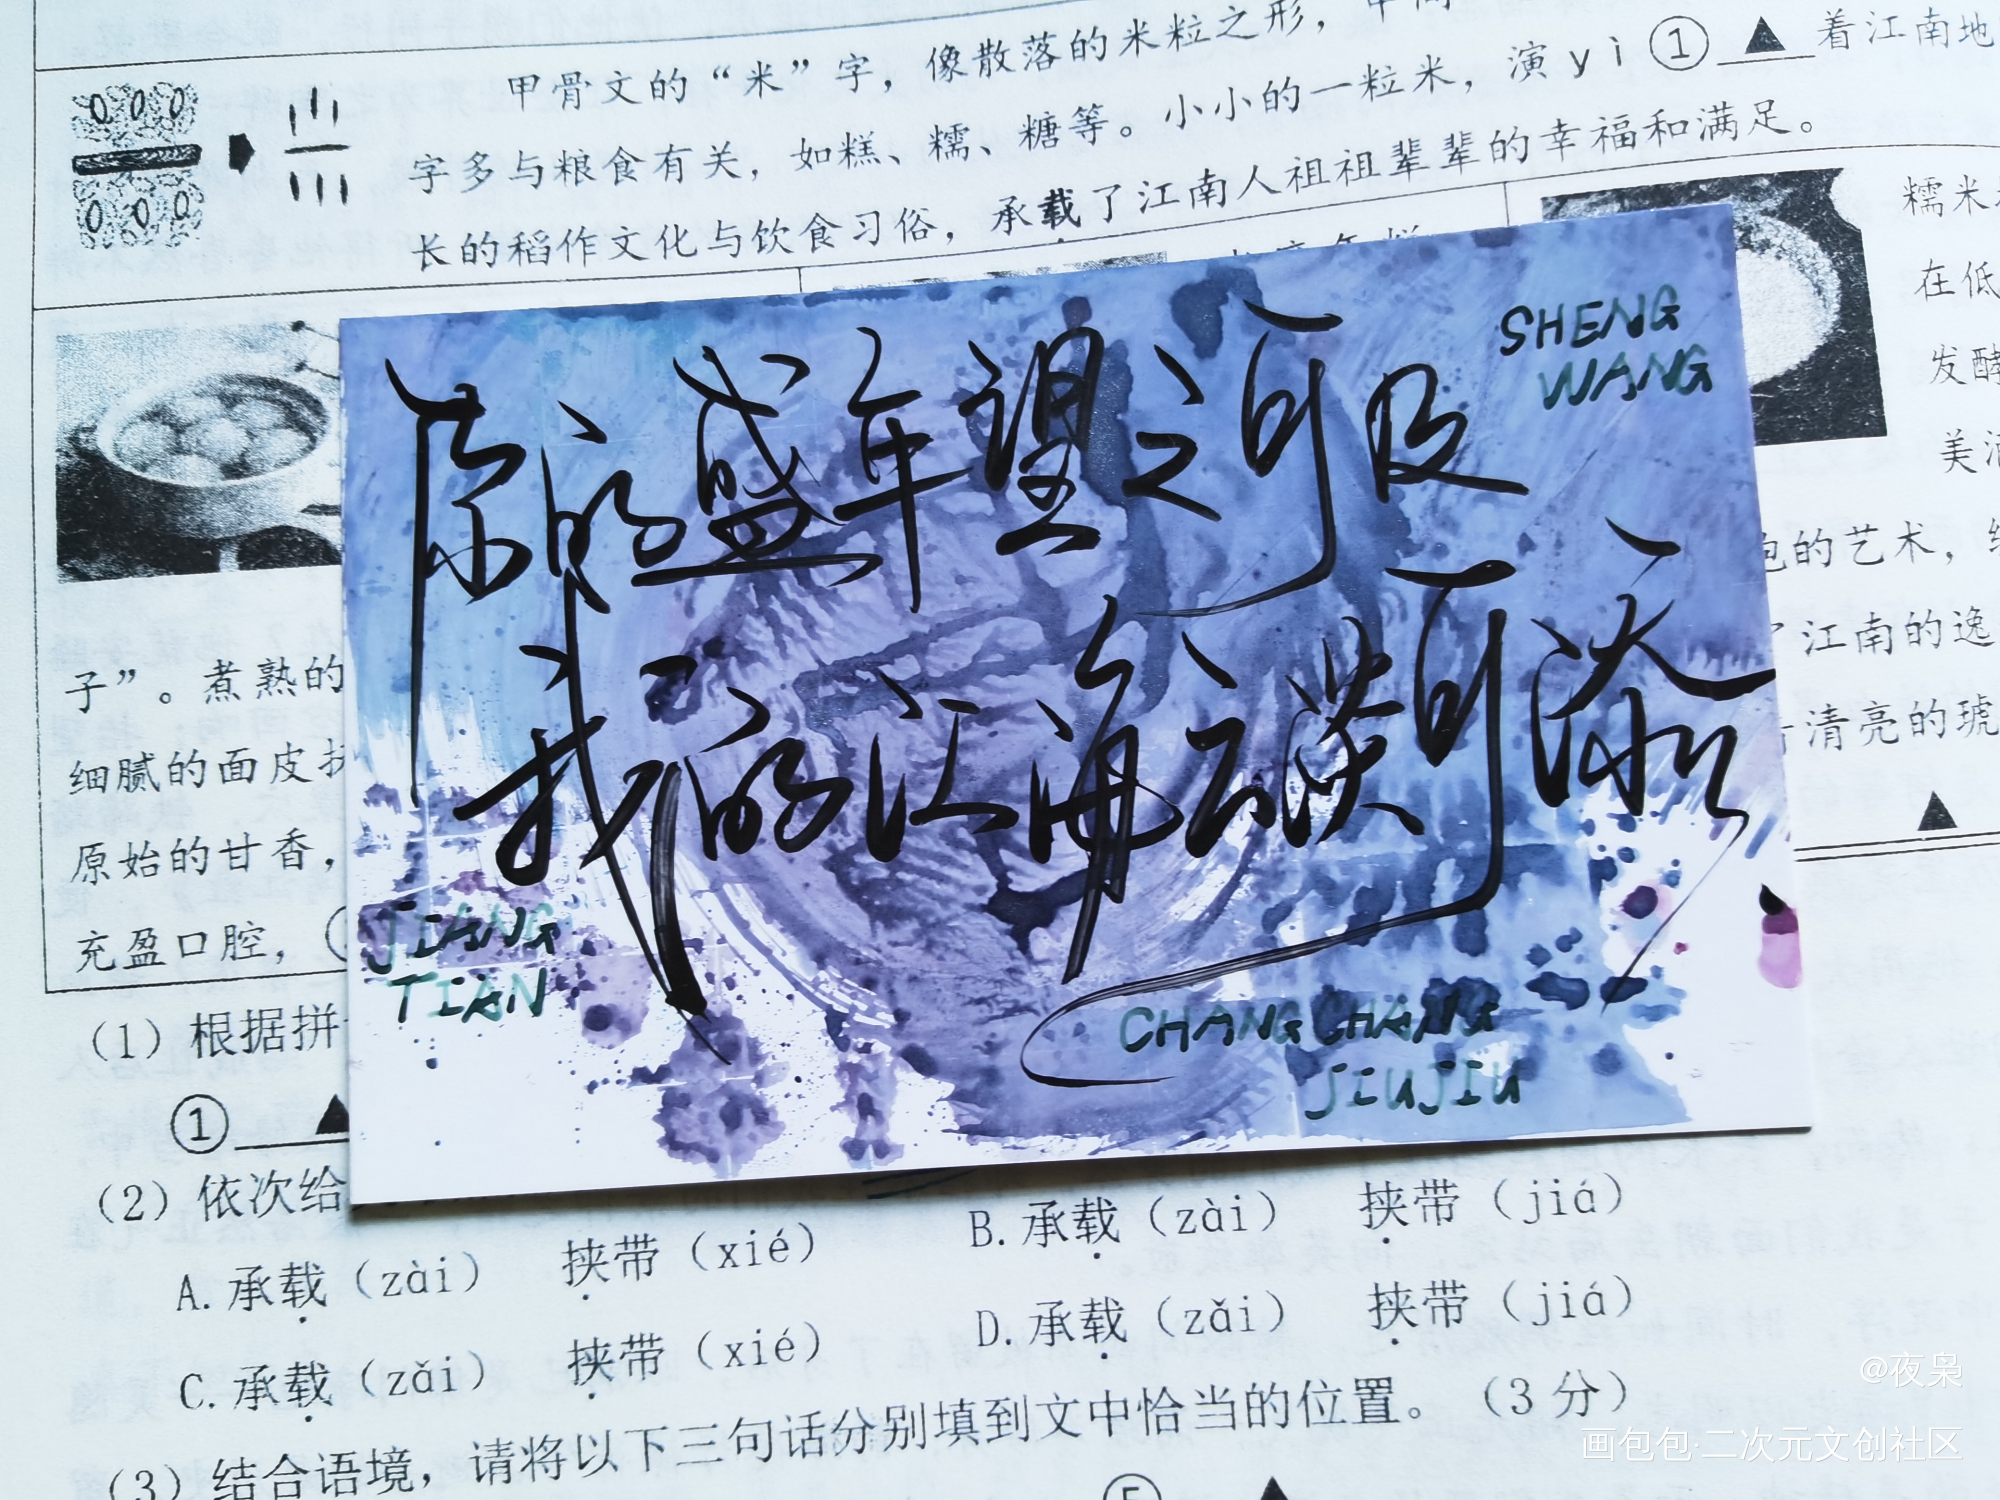 甲骨文的“米”字，像散落的米粒之形，中间
字多与粮食有关，如糕、糯、糖等。小小的一粒米，演yì①▲着江南地
长的稻作文化与饮食习俗，承载了江南人祖祖辈辈的幸福和满足。
糯米
在低
发酵
美酒
SHENG
WANG
的盛年望之可及
我的江海云淡可添
JIANG
TIAN
CHANGCHANG
JIUJIU
的艺术，
子”。煮熟的
江南的逸
细腻的面皮
清亮的琥
原始的甘香，
▲
充盈口腔，
（1）根据拼
①▲
（2）依次给
A.承载（zài） 挟带（xié） B.承载（zài） 挟带（jiá）
C.承载（zǎi） 挟带（xié） D.承载（zǎi） 挟带（jiá）
（3）结合语境，请将以下三句话分别填到文中恰当的位置。（3分）
▲
@夜枭
画包包·二次元文创社区